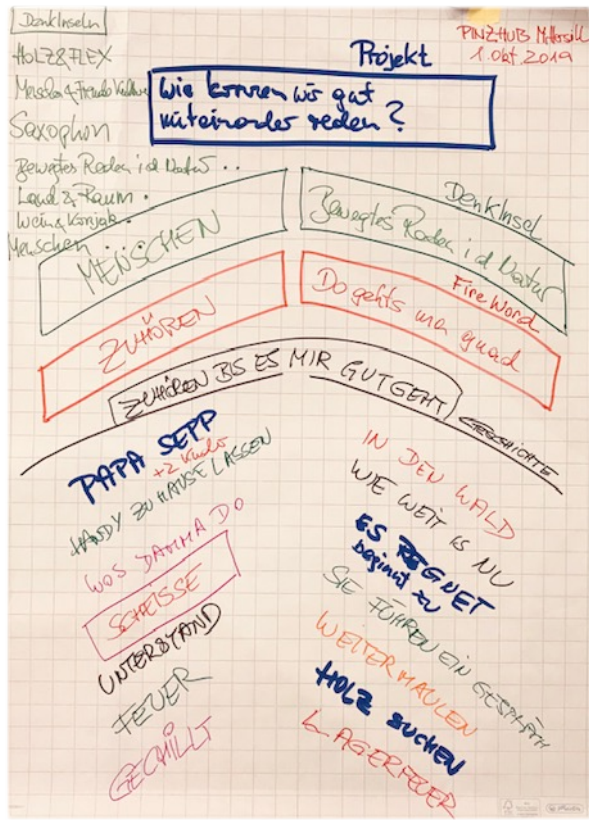 DenkInseln
HOLZ & FLEX
Menschen & Fremde Kulturen
Saxophon
Bewegtes Reden i d Natur
Land & Raum
Wein & Konjak
Menschen
PINZHUB Mittersill
1. Okt. 2019
Projekt
Wie können wir gut
miteinander reden?
MENSCHEN
DenkInsel
Bewegtes Reden i d Natur
ZUHÖREN
FireWord
Do gehts ma guad
ZUHÖREN BIS ES MIR GUT GEHT
GESCHICHTE
PAPA SEPP
+2 Kinder
HANDY ZU HAUSE LASSEN
WOS DAMMA DO
SCHEISSE
UNTERSTAND
FEUER
GECHILLT
IN DEN WALD
WIE WEIT IS NU
ES REGNET
beginnt zu
SIE FÜHREN EIN GESPRÄCH
WEITERMAULEN
HOLZ SUCHEN
LAGERFEUER